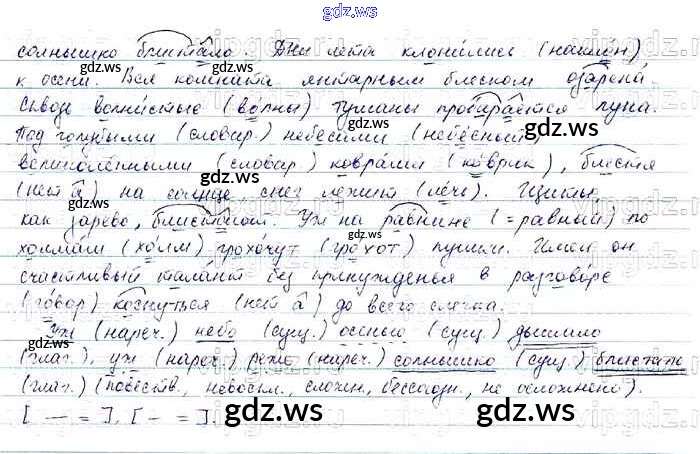 gdz.ws
солнышко блистало. Дни лета клонились (наклон)
к осени. Вся комната янтарным блеском озарена.
Сквозь волнистые (волны) туманы пробирается луна.
Под голубыми (словар.) небесами (небесный)
великолепными (словар.) коврами (коврик), блестя
(нет а) на солнце снег лежит (лечь). Щиты,
как зарево, блистают. Уж на равнине (= равный) по
холмам (холм) грохочут (грохот) пушки. Имел он
счастливый талант без принужденья в разговоре
(говор) коснуться (нет а) до всего слегка.
Уж (нареч.) небо (сущ.) осенью (сущ.) дышало
(глаг.), уж (нареч.) реже (нареч.) солнышко (сущ.) блистало
(глаг.) (повеств., невоскл., сложн., бессоюзн., не осложнено).
[ — = ], [ — = ].
gdz.ws